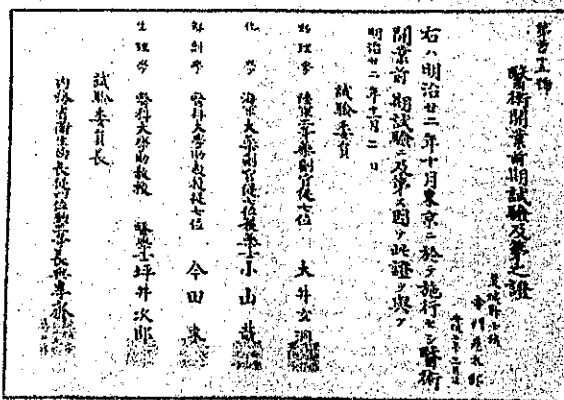 醫術開業前期試驗及第之證
右ハ明治廿二年十月東京ニ於テ施行セシ醫術
開業前期試驗ニ及第ス因テ此證ヲ與フ
明治廿二年十一月二日
試驗委員
物理學 陸軍三等藥劑官從七位 大井玄洞
化學 海軍大藥劑官從七位 小山哉
解剖學 醫科大學助教授從七位 今田束
生理學 醫科大學助教授 醫學士坪井次郎
試驗委員長
內務省衛生局長從四位勳三等長與專齋